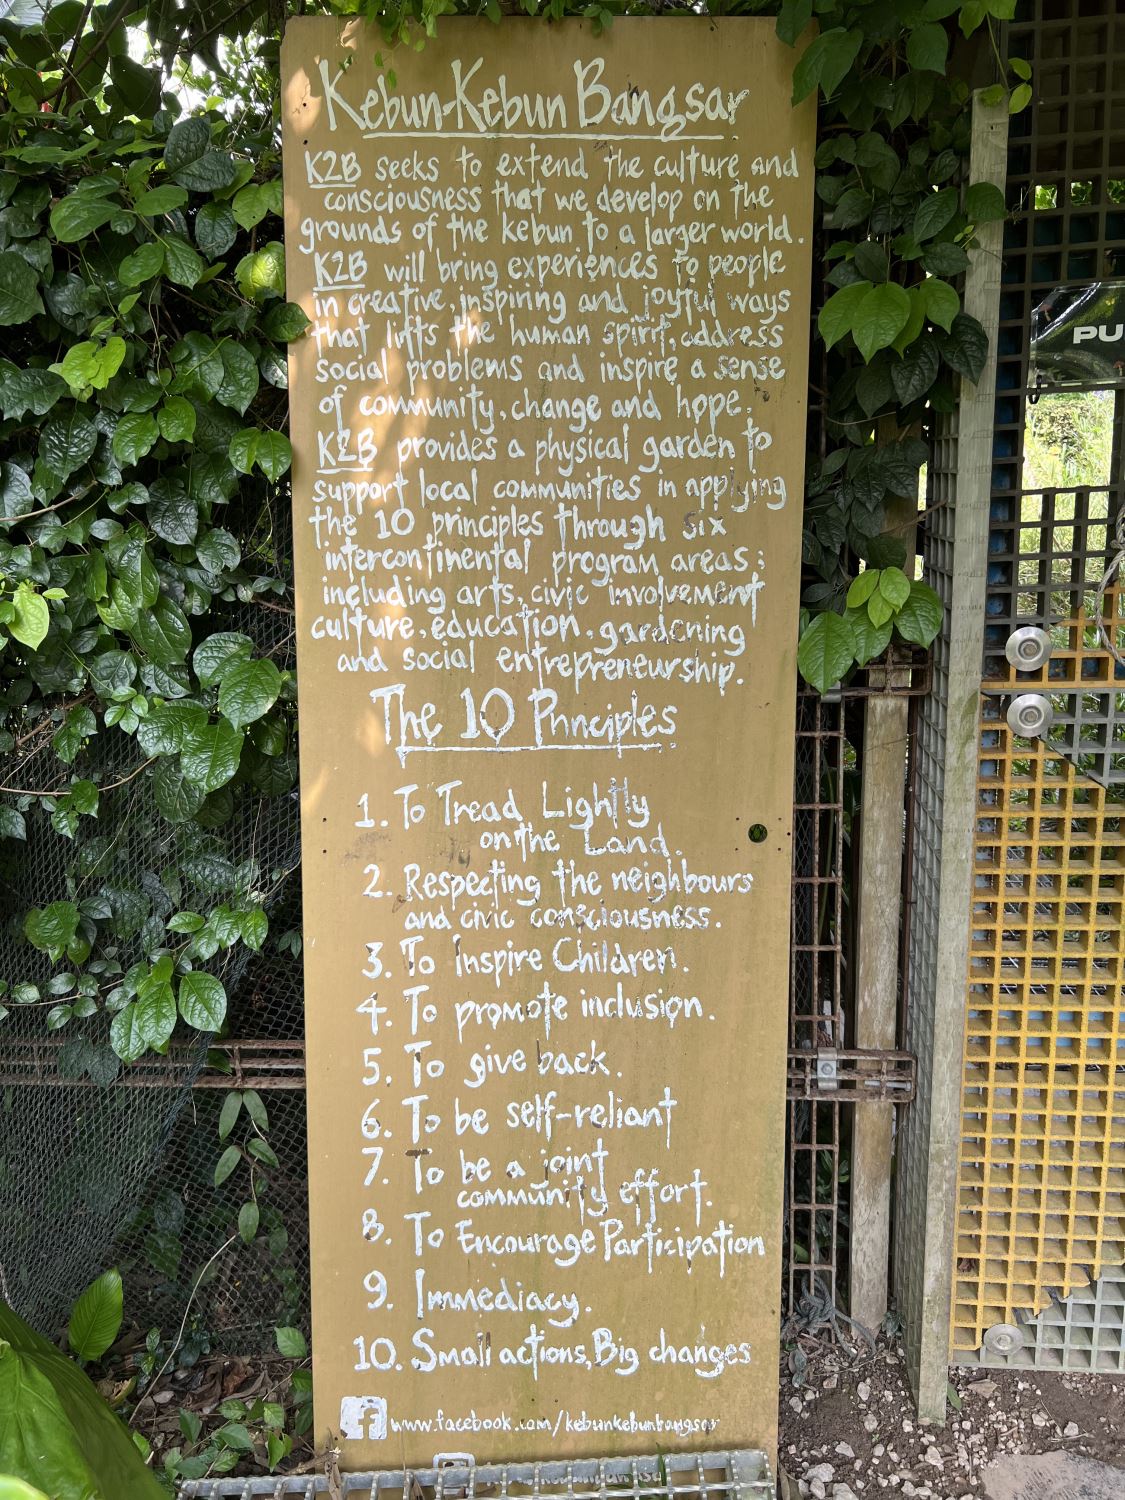 Kebun-Kebun Bangsar
K2B seeks to extend the culture and
consciousness that we develop on the
grounds of the kebun to a larger world.
K2B will bring experiences to people
in creative, inspiring and joyful ways
that lifts the human spirit, address
social problems and inspire a sense
of community, change and hope.
K2B provides a physical garden to
support local communities in applying
the 10 principles through six
intercontinental program areas;
including arts, civic involvement
culture, education, gardening
and social entrepreneurship.
The 10 Principles
1. To Tread Lightly
on the Land.
2. Respecting the neighbours
and civic consciousness.
3. To Inspire Children.
4. To promote inclusion.
5. To give back.
6. To be self-reliant
7. To be a joint
community effort.
8. To Encourage Participation
9. Immediacy.
10. Small actions, Big changes
f www.facebook.com/kebunkebunbangsar
PU